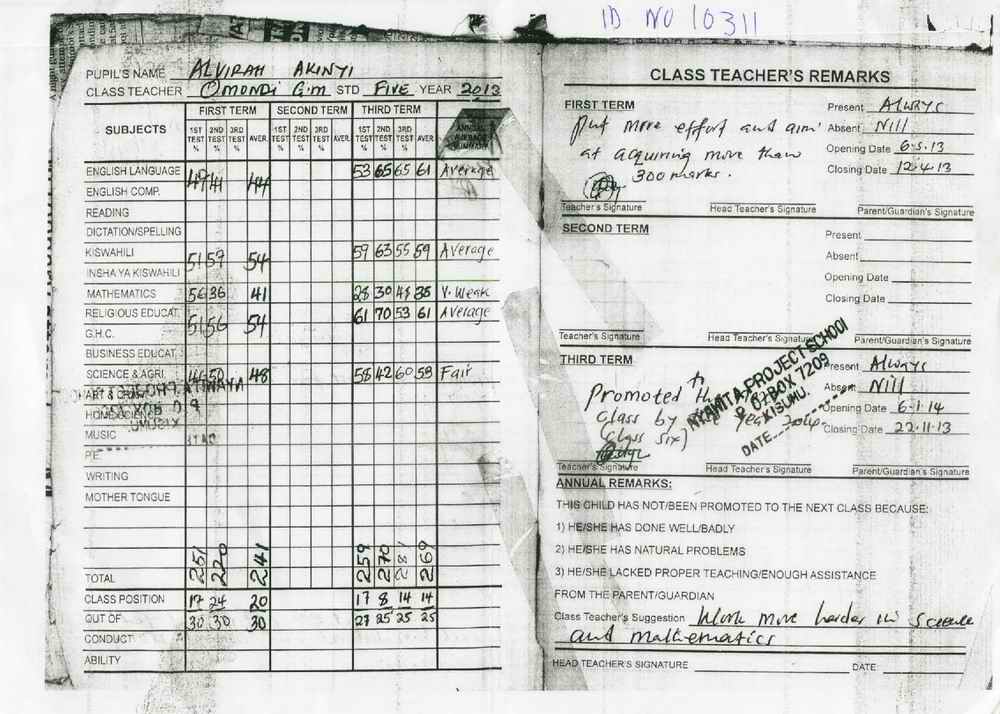 ID NO 10311
PUPIL'S NAME ALVIRAH AKINYI
CLASS TEACHER Omondi G.m STD FIVE YEAR 2013
SUBJECTS
FIRST TERM SECOND TERM THIRD TERM
1ST TEST % 2ND TEST % 3RD TEST % AVER. 1ST TEST % 2ND TEST % 3RD TEST % AVER. 1ST TEST % 2ND TEST % 3RD TEST % AVER.
ENGLISH LANGUAGE 49 41 44 53 65 65 61 Average
ENGLISH COMP.
READING
DICTATION/SPELLING
KISWAHILI 51 57 54 59 63 55 59 Average
INSHA YA KISWAHILI
MATHEMATICS 56 36 41 28 30 48 35 V. Weak
RELIGIOUS EDUCAT. 51 56 54 61 70 53 61 Average
G.H.C.
BUSINESS EDUCAT.
SCIENCE & AGRI. 46 50 48 58 42 60 53 Fair
ART & CRAFT
HOMESCIENCE
MUSIC
P.E
WRITING
MOTHER TONGUE
TOTAL 251 220 241 259 270 281 269
CLASS POSITION 17 24 20 17 8 14 14
OUT OF 30 30 30 27 25 25 25
CONDUCT
ABILITY
CLASS TEACHER'S REMARKS
FIRST TERM
Put more effort and aim
at acquiring more than
300 marks.
Present Always
Absent Nill
Opening Date 6-5-13
Closing Date 12-4-13
Teacher's Signature Head Teacher's Signature Parent/Guardian's Signature
SECOND TERM
Present
Absent
Opening Date
Closing Date
Teacher's Signature Head Teacher's Signature Parent/Guardian's Signature
THIRD TERM
Promoted to the
Class by the year 2014.
(Class Six)
NYAMITA PROJECT SCHOOL
P. O. BOX 7209
KISUMU.
DATE
Present Always
Absent Nill
Opening Date 6-1-14
Closing Date 22-11-13
Teacher's Signature Head Teacher's Signature Parent/Guardian's Signature
ANNUAL REMARKS:
THIS CHILD HAS NOT/BEEN PROMOTED TO THE NEXT CLASS BECAUSE:
1) HE/SHE HAS DONE WELL/BADLY
2) HE/SHE HAS NATURAL PROBLEMS
3) HE/SHE LACKED PROPER TEACHING/ENOUGH ASSISTANCE
FROM THE PARENT/GUARDIAN
Class Teacher's Suggestion Work more harder in Science
and mathematics
HEAD TEACHER'S SIGNATURE DATE: